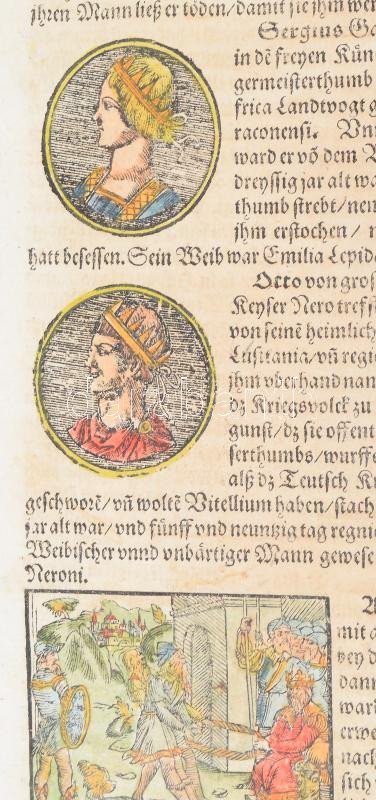 ihren Mann ließ er töden / damit sie ihm wer
Sergius Ga
in dē freyen Kün
germeisterthumb
frica Landtvogt g
raconensi. Vnn
ward er vō dem
dreyssig jar alt wa
thumb strebt / nen
ihm erstochen /
hatt besessen. Sein Weib war Emilia Lepida
Otto von gros
Keyser Nero treff
von seinē heimlich
Lusitania / vñ regie
ihm vberhand nam
dz Kriegsvolck zu
gunst / dz sie offent
serthumbs / wurffe
alß dz Teutsch Kr
geschworē / vñ woltē Vitellium haben / stach
jar alt war / vnd fünff vnd neuntzig tag regnie
Weibischer vnnd vnbärtiger Mann gewese
Neroni.
mit
dann
ward
erwe
nach
sich